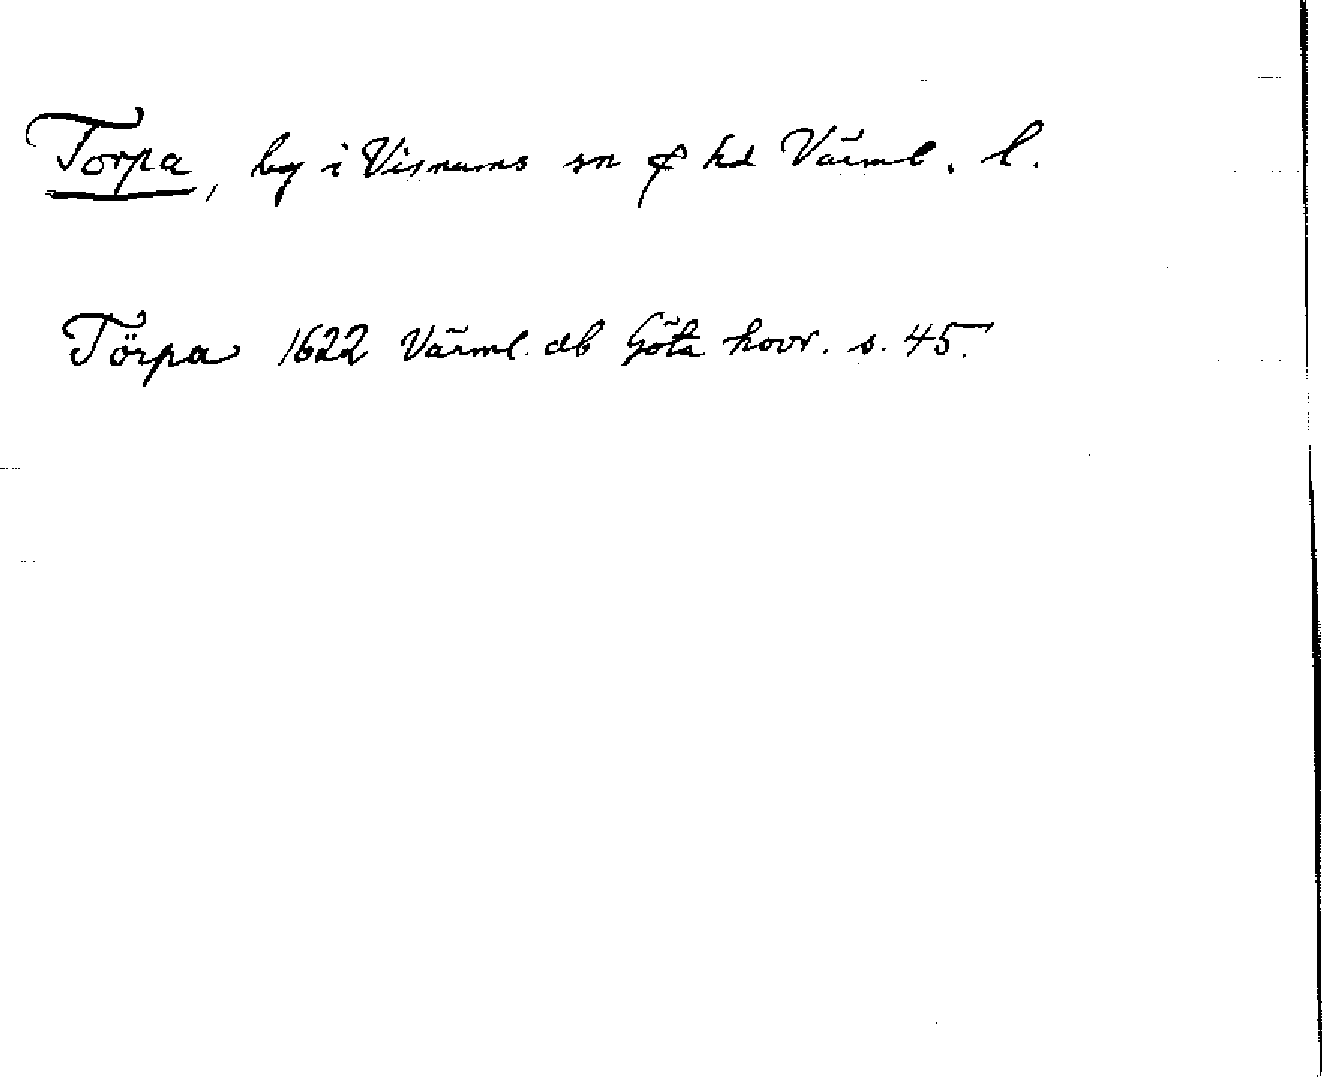 Torpa, by i Visnums sn & hd Värml. l.
Törpa 1622 Värml. db Göta hovr. s. 45.